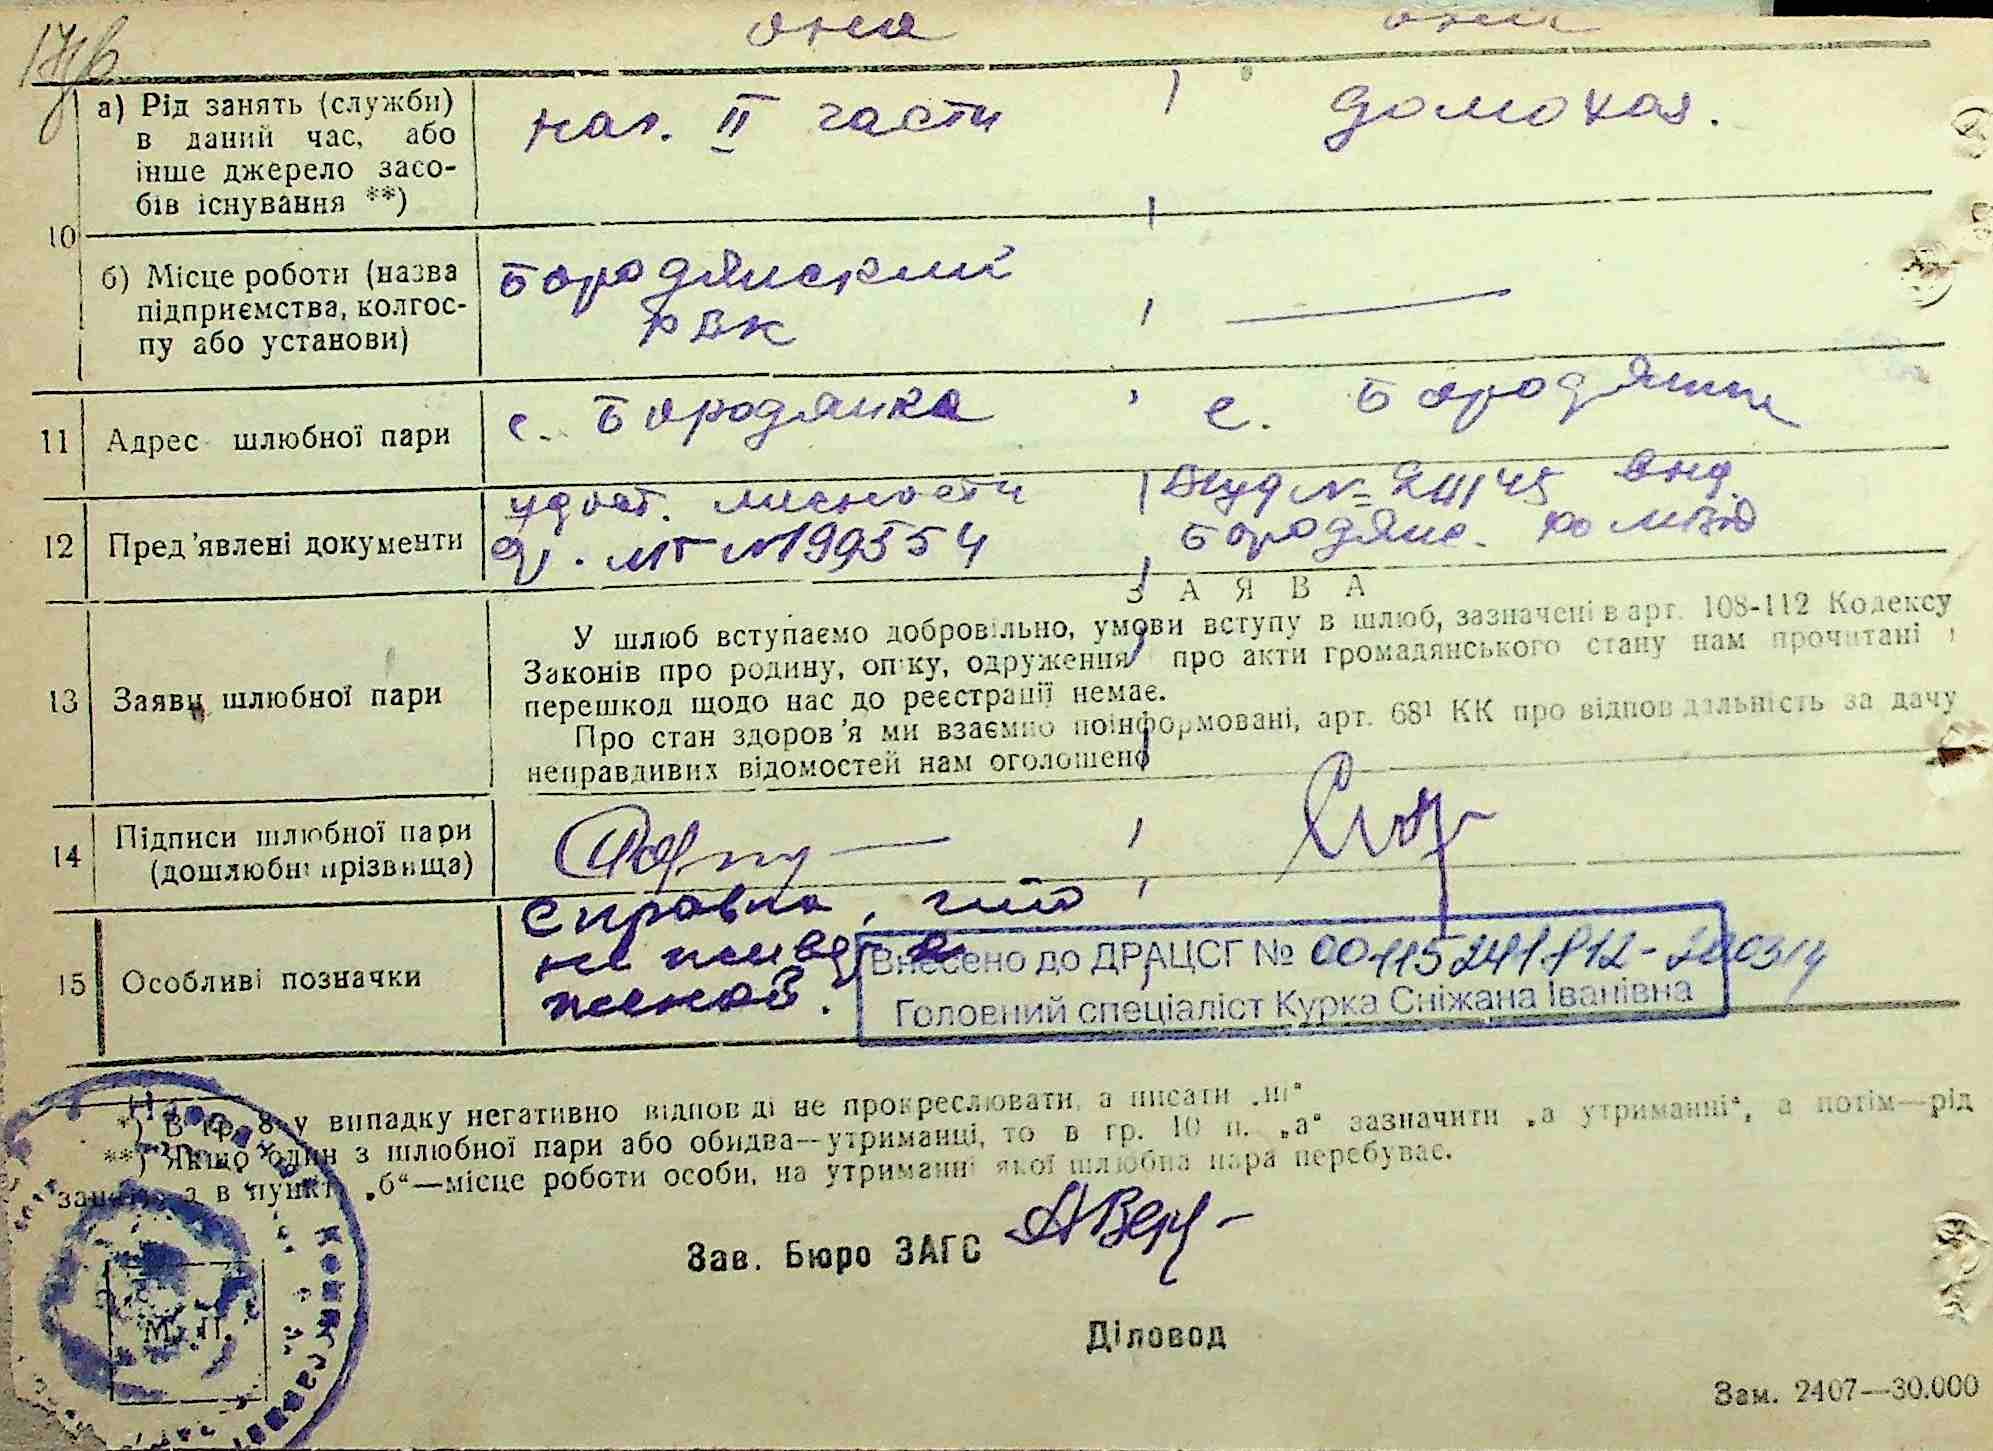 а) Рід занять (служби)
в даний час, або
інше джерело засо-
бів існування **)
нач. II части
домохоз.
10
б) Місце роботи (назва
підприємства, колгос-
пу або установи)
Бородянский
РВК
11 Адрес шлюбної пари
с. Бородянка
с. Бородянка
12 Пред'явлені документи
удост. личности
№ 199554
Бородянс.
З А Я В А
13 Заяви шлюбної пари
У шлюб вступаємо добровільно, умови вступу в шлюб, зазначені в арт. 108-112 Кодексу
Законів про родину, опіку, одруження про акти громадянського стану нам прочитані і
перешкод щодо нас до реєстрації немає.
Про стан здоров'я ми взаємно поінформовані, арт. 68¹ КК про відповідальність за дачу
неправдивих відомостей нам оголошено
14 Підписи шлюбної пари
(дошлюбні прізвища)
15 Особливі позначки
Справка, что
не живет с
женой.
Внесено до ДРАЦСГ №
Головний спеціаліст Курка Сніжана Іванівна
*) В гр. 8 у випадку негативно відповіді не прокреслювати, а писати „ні“
**) Якщо один з шлюбної пари або обидва—утриманці, то в гр. 10 п. „а“ зазначити „а утриманні“, а потім—рід
занять, а в пункті „б“—місце роботи особи, на утриманні якої шлюбна пара перебуває.
Зав. Бюро ЗАГС
Діловод
М. П.
Зам. 2407—30.000